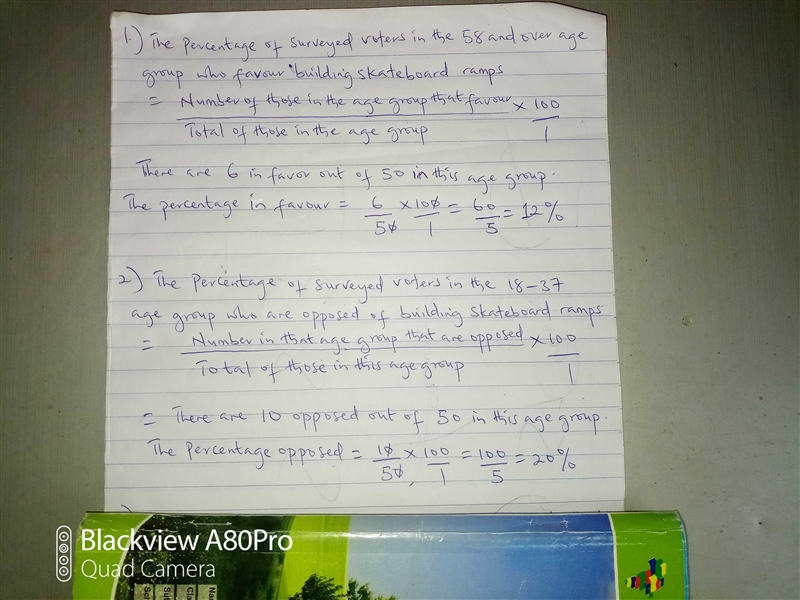 1.) The Percentage of surveyed voters in the 58 and over age
group who favour building skateboard ramps
= Number of those in the age group that favour × 100
Total of those in the age group 1
There are 6 in favor out of 50 in this age group.
The percentage in favour = 6/50 × 100/1 = 60/5 = 12%
2) The Percentage of surveyed voters in the 18-37
age group who are opposed of building skateboard ramps
= Number in that age group that are opposed × 100
Total of those in this age group 1
= There are 10 opposed out of 50 in this age group.
The Percentage opposed = 10/50 × 100/1 = 100/5 = 20%
Blackview A80Pro
Quad Camera